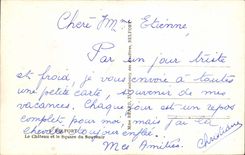 Cheré Mme Etienne,
Par un jour triste
et froid, je vous envoie à toutes
une petite carte, souvenir de mes
vacances. Chaque jour est un repos
complet, pour moi, mais j'ai la
cheville toujours enflée.
Mes Amitiés. Christiane
BELFORT
Le Château et le Square du Souvenir